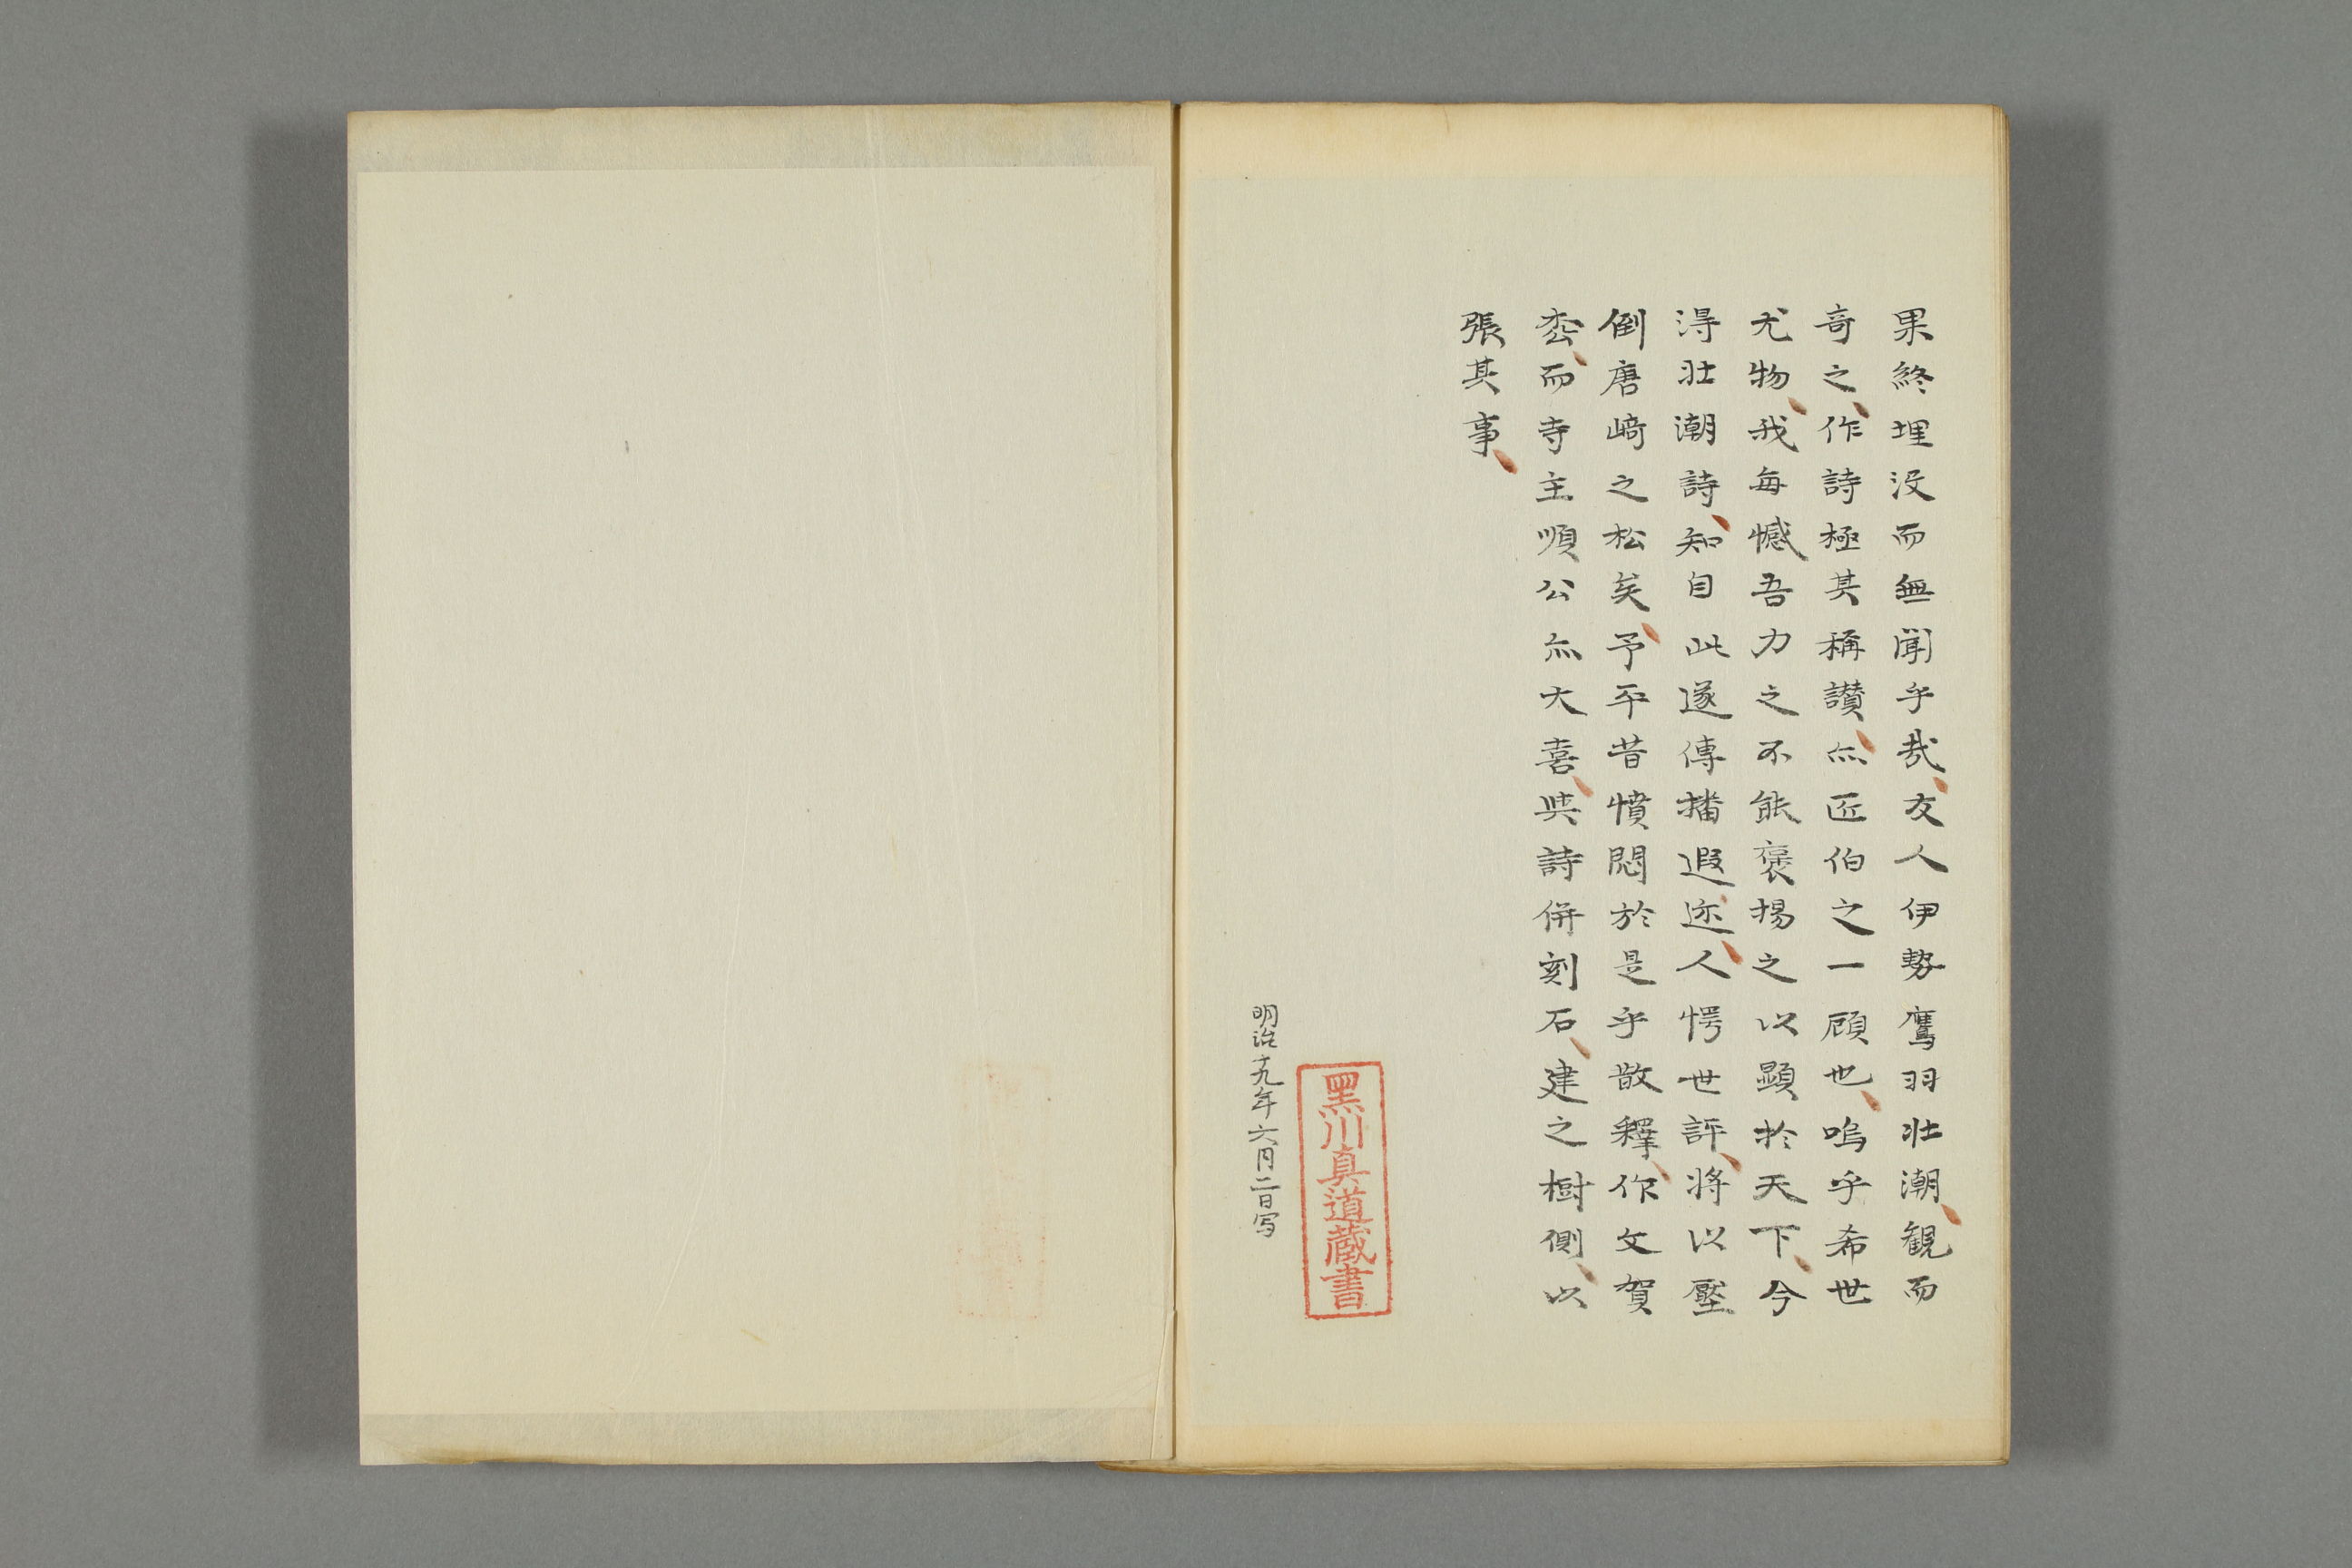 果終埋没而無聞乎哉、友人伊勢鷹羽壮潮、観而
奇之、作詩極其稱讃、亦匠伯之一顧也、嗚乎希世
尤物、我毎憾吾力之不能褒揚之以顕於天下、今
淂壮潮詩、知自此遂傳播遐迩、人愕世評、将以壓
倒唐﨑之松矣、予平昔憤悶於是乎散釋、作文賀
枩、而寺主順公亦大喜、与詩併刻石、建之樹側、以
張其事、
黒川真道蔵書
明治十九年六月二日写